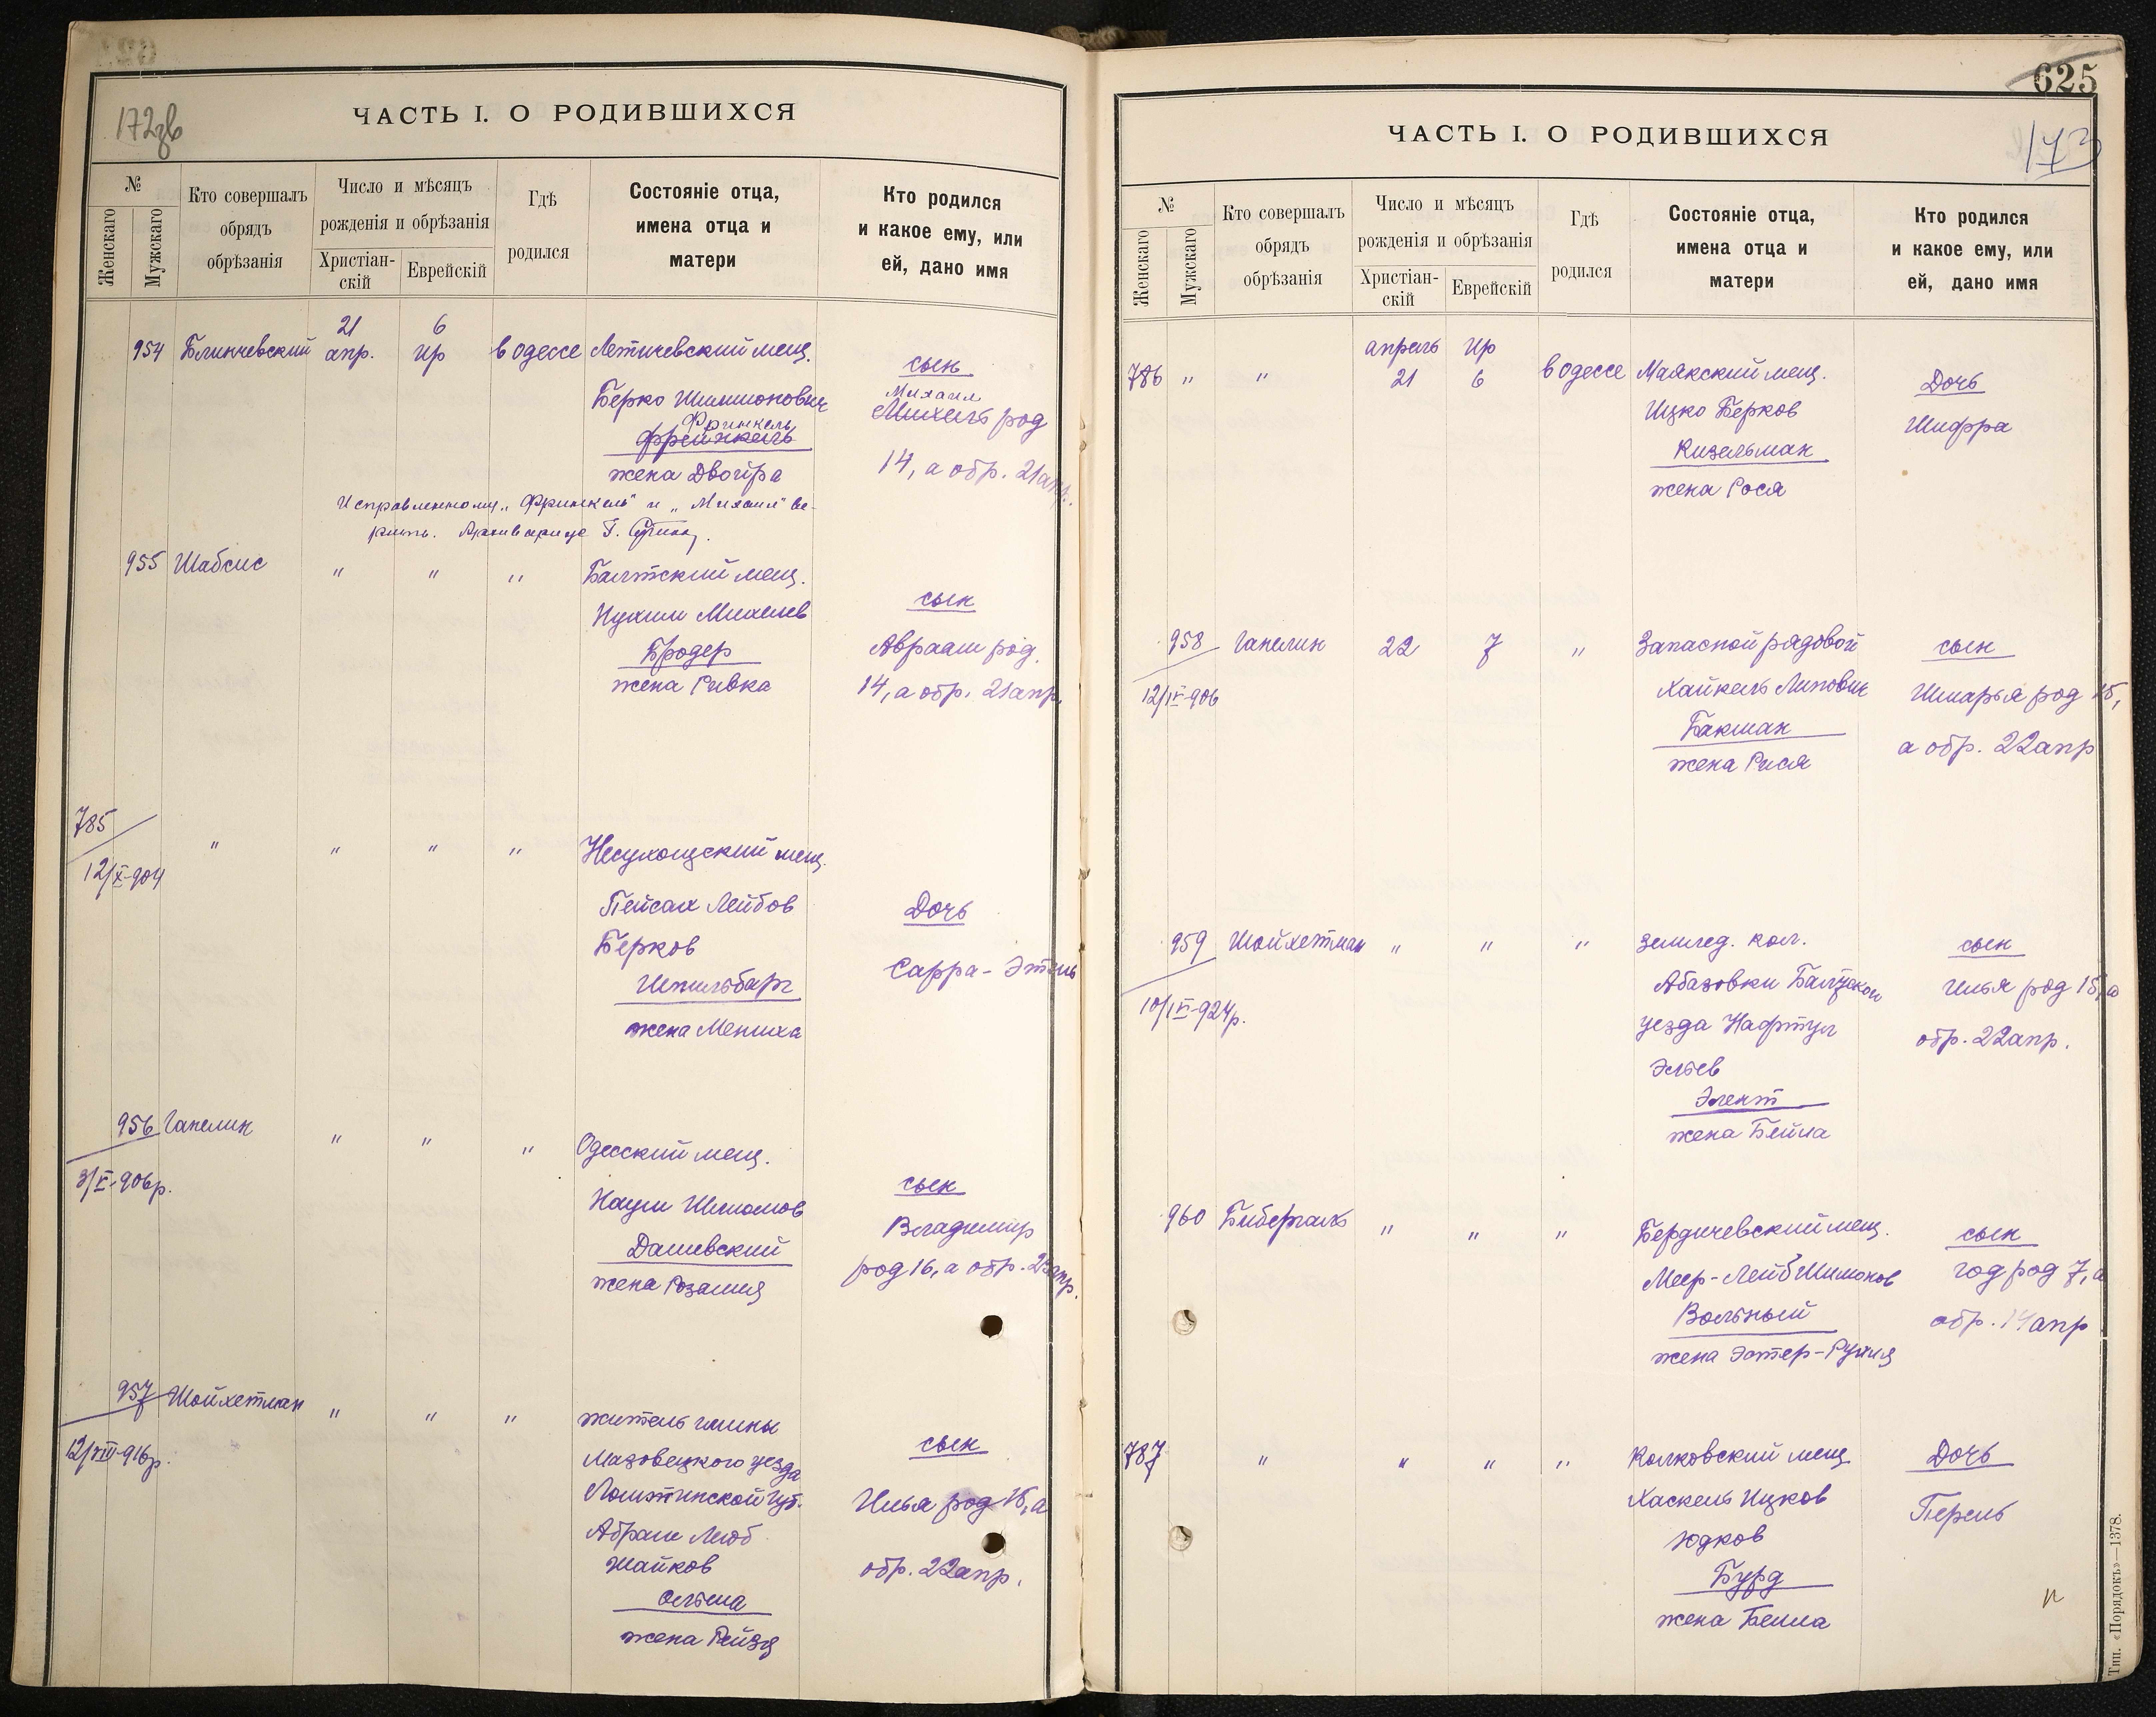 172зв
ЧАСТЬ I. О РОДИВШИХСЯ
№
Женскаго
Мужскаго
Кто совершалъ
обрядъ
обрѣзанія
Число и мѣсяцъ
рожденія и обрѣзанія
Христіан-
скій
Еврейскій
Гдѣ
родился
Состояніе отца,
имена отца и
матери
Кто родился
и какое ему, или
ей, дано имя
21 6
954 Блинчевский апр. Ир в Одессе Летичевский мещ.
сын
Берко Шимионович
Михаил
Михель род
Фринкель
Фрейнкель
жена Двойра
14, а обр. 21 апр.
Исправленному "Фринкель" и "Михаил" ве-
рить. Архивариус Г.
955 Шабсис " " " Балтский мещ.
сын
Нухим Михелев
Бродер
Авраам род.
жена Ривка
14, а обр. 21 апр.
785
" " " " Несухоецский мещ.
12/X-904
Пейсах Лейбов
Дочь
Берков
Сарра-Этель
Шпильбарг
жена Мениха
956 Ганелин " " " Одесский мещ.
3/V-906р.
сын
Наум Шломов
Владимир
Дашевский
род 16, а обр. 23 апр.
жена Розалия
957 Шойхетман " " " житель гмины
12/VIII-916р.
Мазовецкого уезда
сын
Ломжинской губ.
Илья род 15, а
Абрам Лейб
Шайков
обр. 22 апр.
Ольша
жена Рейзя
625
173
ЧАСТЬ I. О РОДИВШИХСЯ
№
Женскаго
Мужскаго
Кто совершалъ
обрядъ
обрѣзанія
Число и мѣсяцъ
рожденія и обрѣзанія
Христіан-
скій
Еврейскій
Гдѣ
родился
Состояніе отца,
имена отца и
матери
Кто родился
и какое ему, или
ей, дано имя
апрель Ир
786 " " 21 6 в Одессе Маякский мещ.
Дочь
Ицко Берков
Шифра
Кизельман
жена Рося
958 Ганелин 22 7 " Запасной рядовой сын
12/IV-906
Хайкель Липович
Шмарья род 15,
Бакман
а обр. 22 апр
жена Рися
959 Шойхетман " " " землед. кол. сын
Абазовки Балтского
Илья род 15, а
10/IV-924р.
уезда Нафтул
обр. 22 апр.
Эльев
Элент
жена Бейла
960 Бибергаль " " " Бердичевский мещ. сын
Меер-Лейб Шимонов
год род 7, а
Вольный
обр. 14 апр
жена Эстер-Рухля
787 " " " " Колковский мещ. Дочь
Хаскель Ицков
Перель
Юдков
Бурд
жена Бейла
Тип. «Порядокъ»—1378.